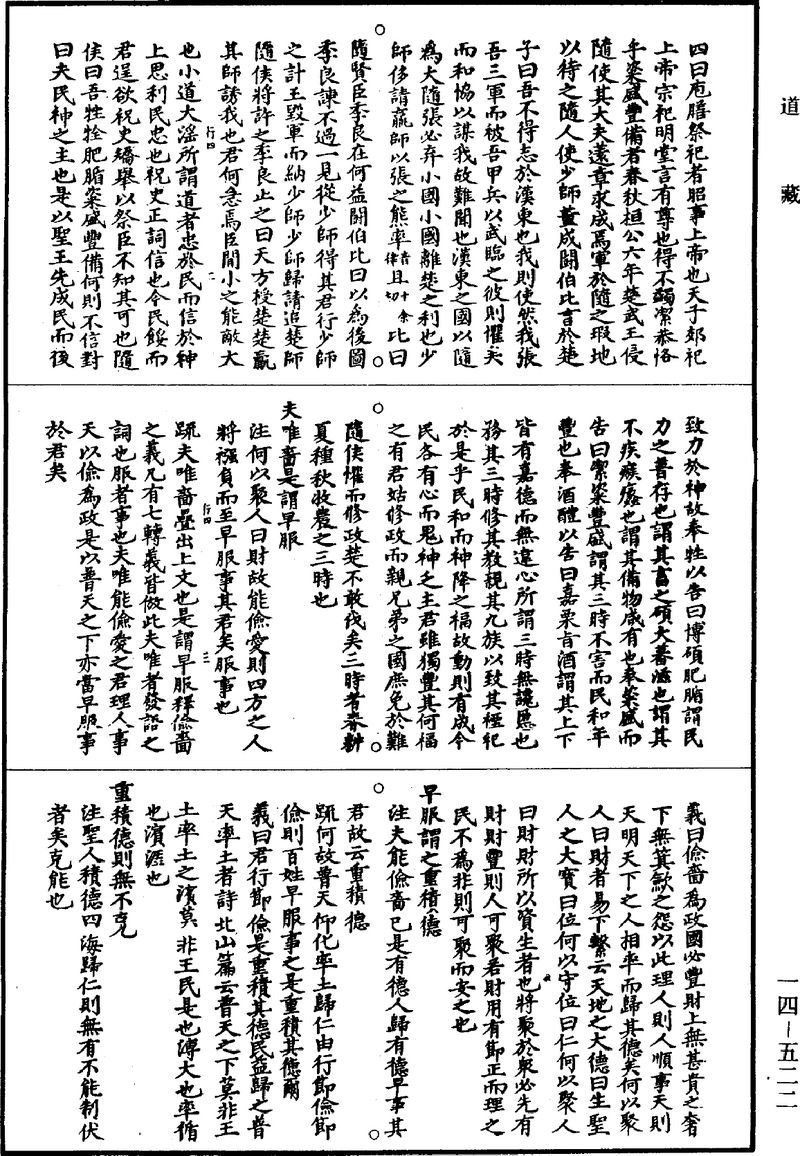 道藏
四曰庖膳祭祀者昭事上帝也天子郊祀
上帝宗祀明堂言有尊也得不蠲潔恭恪
乎粢盛豐備者春秋桓公六年楚武王侵
隨使其大夫薳章求成焉軍於隨之瑕地
以待之隨人使少師董成鬬伯比言於楚
子曰吾不得志於漢東也我則使然我張
吾三軍而被吾甲兵以武臨之彼則懼矣
而和協以謀我故難閒也漢東之國以隨
為大隨張必弃小國小國離楚之利也少
師侈請羸師以張之熊率且比曰
隨賢臣季良在何益鬬伯比曰以為後圖
季良諫不過一見從少師得其君行少師
之計王毀軍而納少師少師歸請追楚師
隨侯將許之季良止之曰天方授楚楚羸
其師誘我也君何急焉臣聞小之能敵大
也小道大淫所謂道者忠於民而信於神
上思利民忠也祝史正詞信也今民餒而
君逞欲祝史矯舉以祭臣不知其可也隨
侯曰吾牲牷肥腯粢盛豐備何則不信對
曰夫民神之主也是以聖王先成民而後
致力於神故奉牲以告曰博碩肥腯謂民
力之普存也謂其畜之碩大蕃滋也謂其
不疾瘯瘯也謂其備物咸有也奉粢盛而
告曰潔粢豐盛謂其三時不害而民和年
豐也奉酒醴以告曰嘉栗旨酒謂其上下
皆有嘉德而無違心所謂三時無讒慝也
務其三時修其教親其九族以致其禋祀
於是乎民和而神降之福故動則有成今
民各有心而鬼神乏主君雖獨豐其何福
之有君姑修政而親兄弟之國庶免於難
隨侯懼而修政楚不敢伐矣三時者春耕
夏種秋收農之三時也
夫唯嗇是謂早服
注何以聚人曰財故能儉愛則四方之人
將襁負而至早服事其君矣服事也
疏夫唯嗇疊出上文也是謂早服釋儉嗇
之義凡有七轉義皆倣此夫唯者發語之
詞也服者事也夫唯能儉愛之君理人事
天以儉為政是以普天之下亦當早服事
於君矣
義曰儉嗇為政國必豐財上無甚貴之奢
下無箕歛之怨以此理人則人順事天則
天明天下之人相率而歸其德矣何以聚
人曰財者易下繫云天地之大德曰生聖
人之大寶曰位何以守位曰仁何以聚人
曰財財所以資生者也將聚於眾必先有
財財豐則人可聚若財用有節正而理之
民不為非則可聚而安之也
早服謂之重積德
注夫能儉嗇已是有德人歸有德早事其
君故云重積德
疏何故普天仰化率土歸仁由行節儉節
儉則百姓早服事之是重積其德爾
義曰君行節儉是重積其德民益歸之普
天率土者詩北山篇云普天之下莫非王
土率土之濱莫非王民是也溥大也率循
也濱涯也
重積德則無不克
注聖人積德四海歸仁則無有不能制伏
者矣克能也
一四－五二二